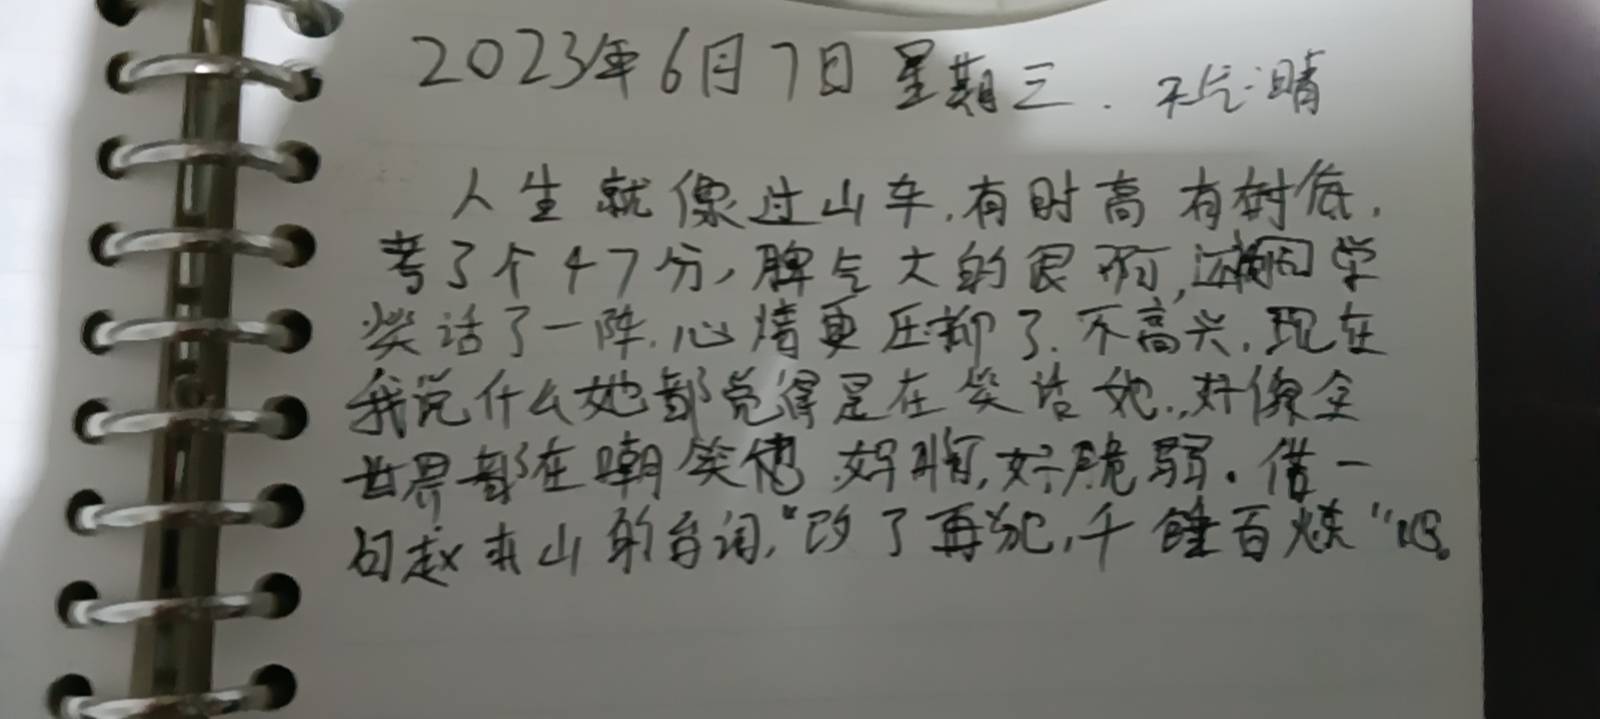 2023年6月7日 星期三. 天气:晴
人生就像过山车,有时高有时低,
考了个47分,脾气大的很啊,还被同学
笑话了一阵,心情更压抑了.不高兴,现在
我说什么她都觉得是在笑话她.,好像全
世界都在嘲笑她,好 ,好脆弱.借一
句赵本山的台词,“改了再犯,千锤百炼”吧。